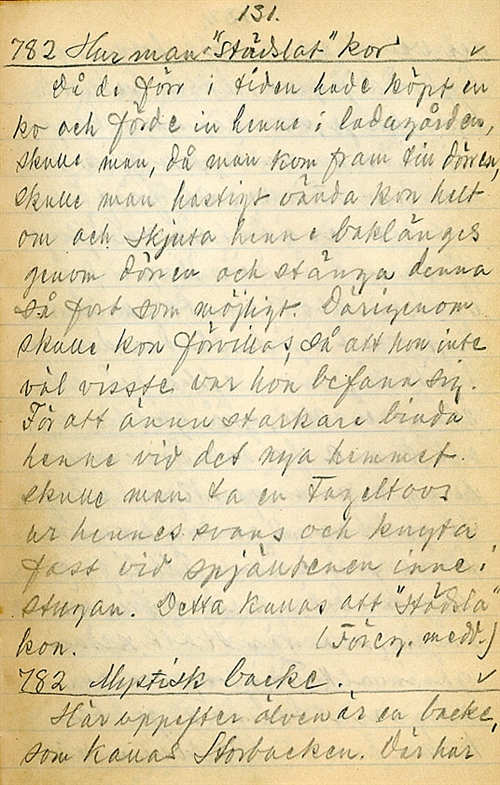 131.
782 Hur man "städslat" kor ✓
Då de förr i tiden hade köpt en
ko och förde in henne i ladugården,
skulle man, då man kom fram till dörren,
skulle man hastigt vända kon helt
om och skjuta henne baklänges
genom dörren och stänga denna
så fort som möjligt. Därigenom
skulle kon förvillas, så att hon inte
väl visste var hon befann sig.
För att ännu starkare binda
henne vid det nya hemmet
skulle man ta en Tageltovs
ur hennes svans och knyta
fast vid spjälltenen inne i
stugan. Detta kallas att "städsla"
kon. (Föreg. medd.)
782 Mystisk backe. ✓
Här uppefter älven är en backe,
som kallas Storbacken. Där har